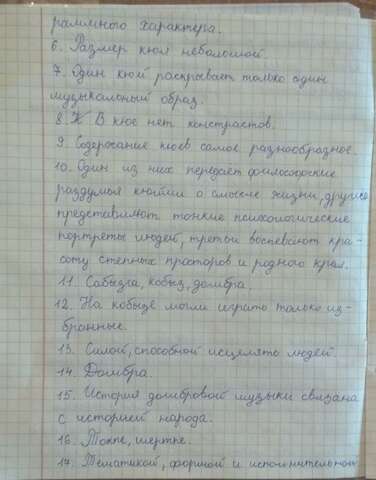 раммного характера.
6. Размер кюя небольшой.
7. Один кюй раскрывает только один
музыкальный образ.
8. В кюе нет контрастов.
9. Содержание кюев самое разнообразное.
10. Один из них передает философские
раздумья кюйши о смысле жизни, другие
представляют тонкие психологические
портреты людей, третьи воспевают кра-
соту степных просторов и родного края.
11. Сабызга, кобыз, домбра.
12. На кобызе могли играть только из-
бранные.
13. Силой, способной исцелять людей.
14. Домбра
15. История домбровой музыки связана
с историей народа.
16. Токпе, шертпе.
17. Тематикой, формой и исполнительской